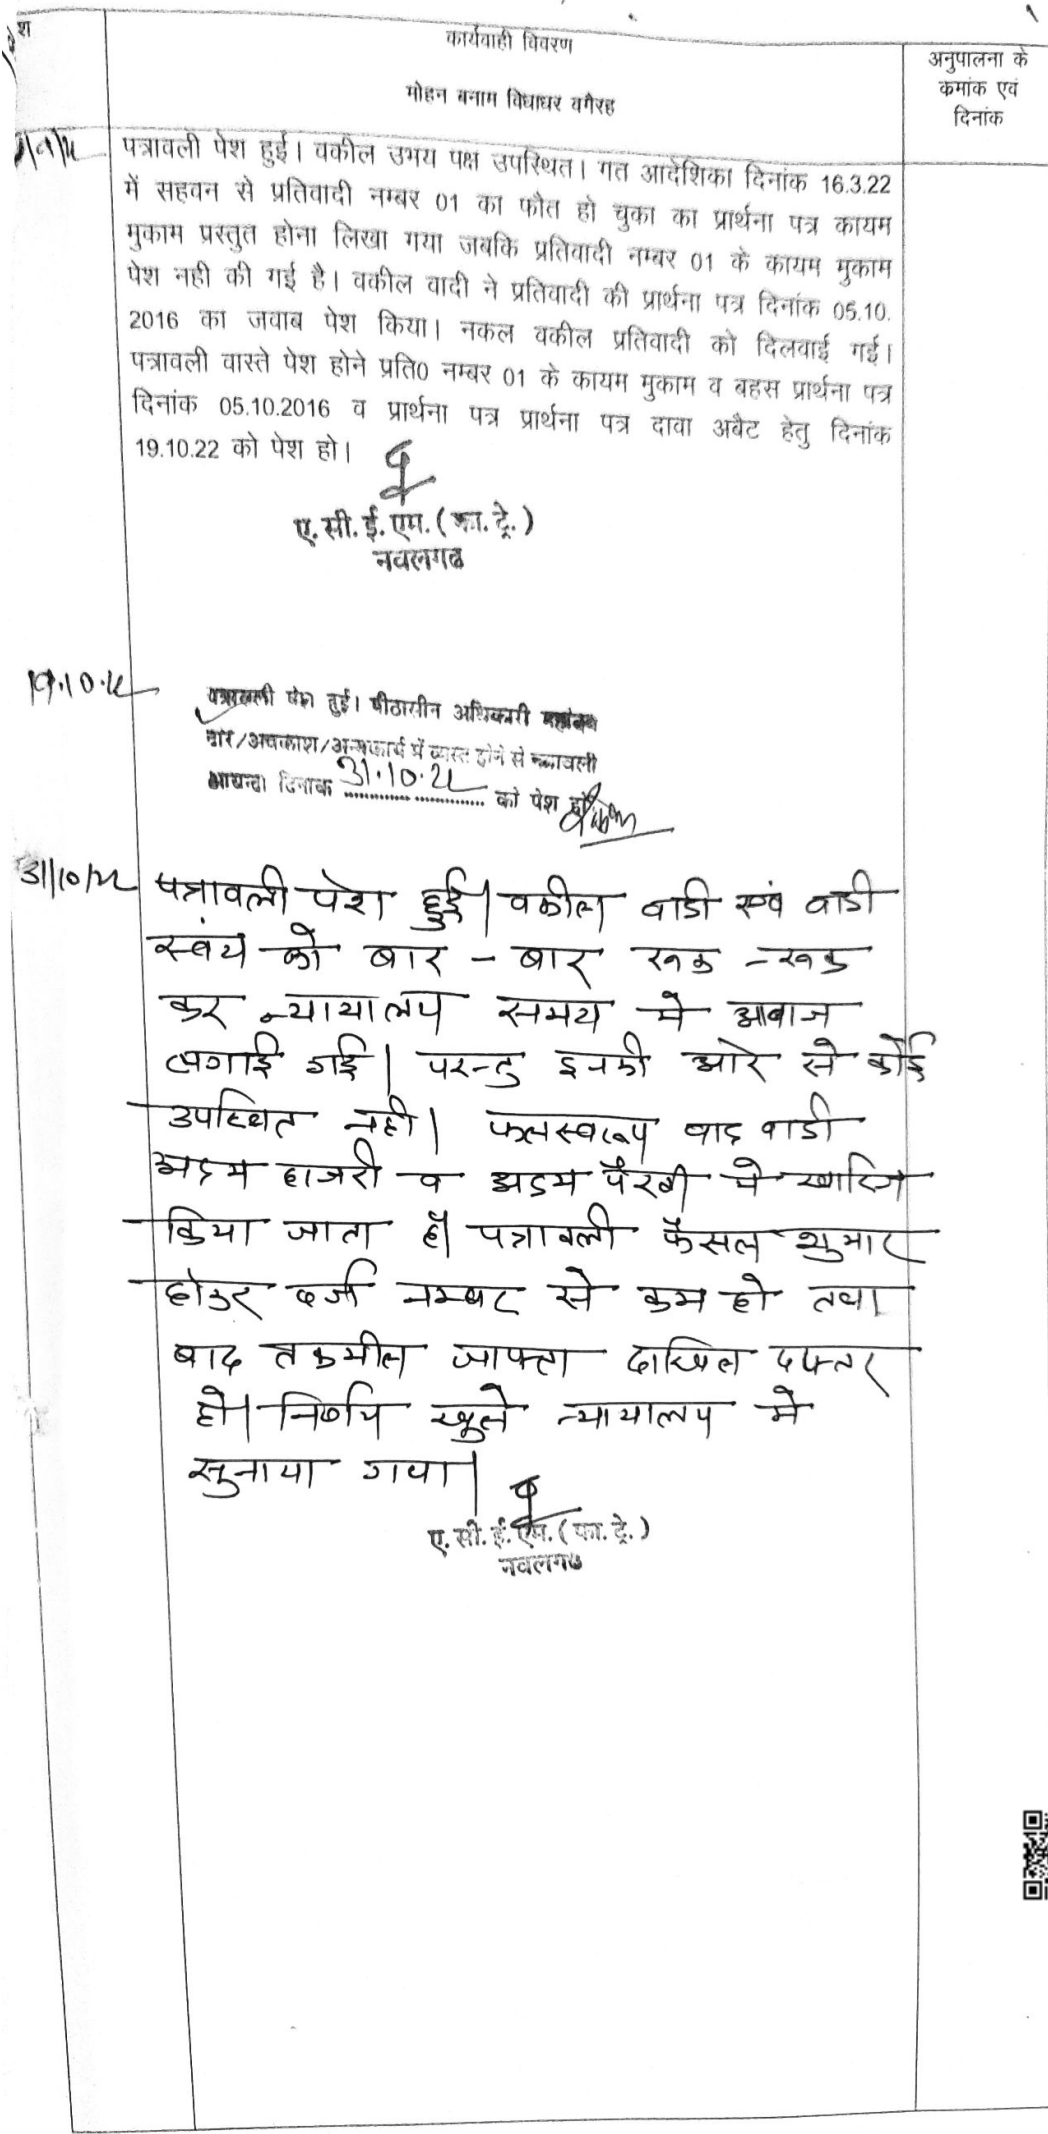 श
कार्यवाही विवरण
मोहन बनाम विधाधर वगैरह
अनुपालना के
कमांक एवं
दिनांक
पत्रावली पेश हुई। वकील उभय पक्ष उपस्थित। गत आदेशिका दिनांक 16.3.22
में सहवन से प्रतिवादी नम्बर 01 का फौत हो चुका का प्रार्थना पत्र कायम
मुकाम प्रस्तुत होना लिखा गया जबकि प्रतिवादी नम्बर 01 के कायम मुकाम
पेश नही की गई है। वकील वादी ने प्रतिवादी की प्रार्थना पत्र दिनांक 05.10.
2016 का जवाब पेश किया। नकल वकील प्रतिवादी को दिलवाई गई।
पत्रावली वास्ते पेश होने प्रति0 नम्बर 01 के कायम मुकाम व बहस प्रार्थना पत्र
दिनांक 05.10.2016 व प्रार्थना पत्र प्रार्थना पत्र दावा अबैट हेतु दिनांक
19.10.22 को पेश हो।
ए.सी.ई.एम.(फा.ट्रे.)
नवलगढ
19.10.22
पत्रावली पेश हुई। पीठासीन अधिकारी
/अवकाश/अन्य कार्य में व्यस्त होने से पत्रावली
आयन्दा दिनांक 31.10.22 को पेश हो
31/10/22
पत्रावली पेश हुई। वकील वादी एवं वादी
स्वंय को बार - बार रूक - रूक
कर न्यायालय समय मे आवाज
लगाई गई। परन्तु इनकी ओर से कोई
उपस्थित नही। फलस्वरूप वाद वादी
अदम हाजरी व अदम पैरवी मे खारिज
किया जाता है। पत्रावली फैसल शुमार
होकर दर्ज नम्बर से कम हो तथा
बाद तकमील जाप्ता दाखिल दफ्तर
हो। निर्णय खुले न्यायालय मे
सुनाया गया।
ए.सी.ई.एम.(फा.ट्रे.)
नवलगढ